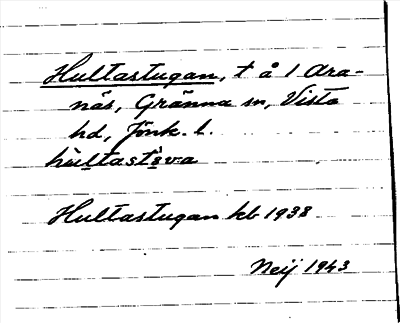 Hultastugan, t å 1 Ara-
näs, Gränna sn, Vista
hd, Jönk. l.
hùltastùva
Hultastugan kb 1938
Neij 1943